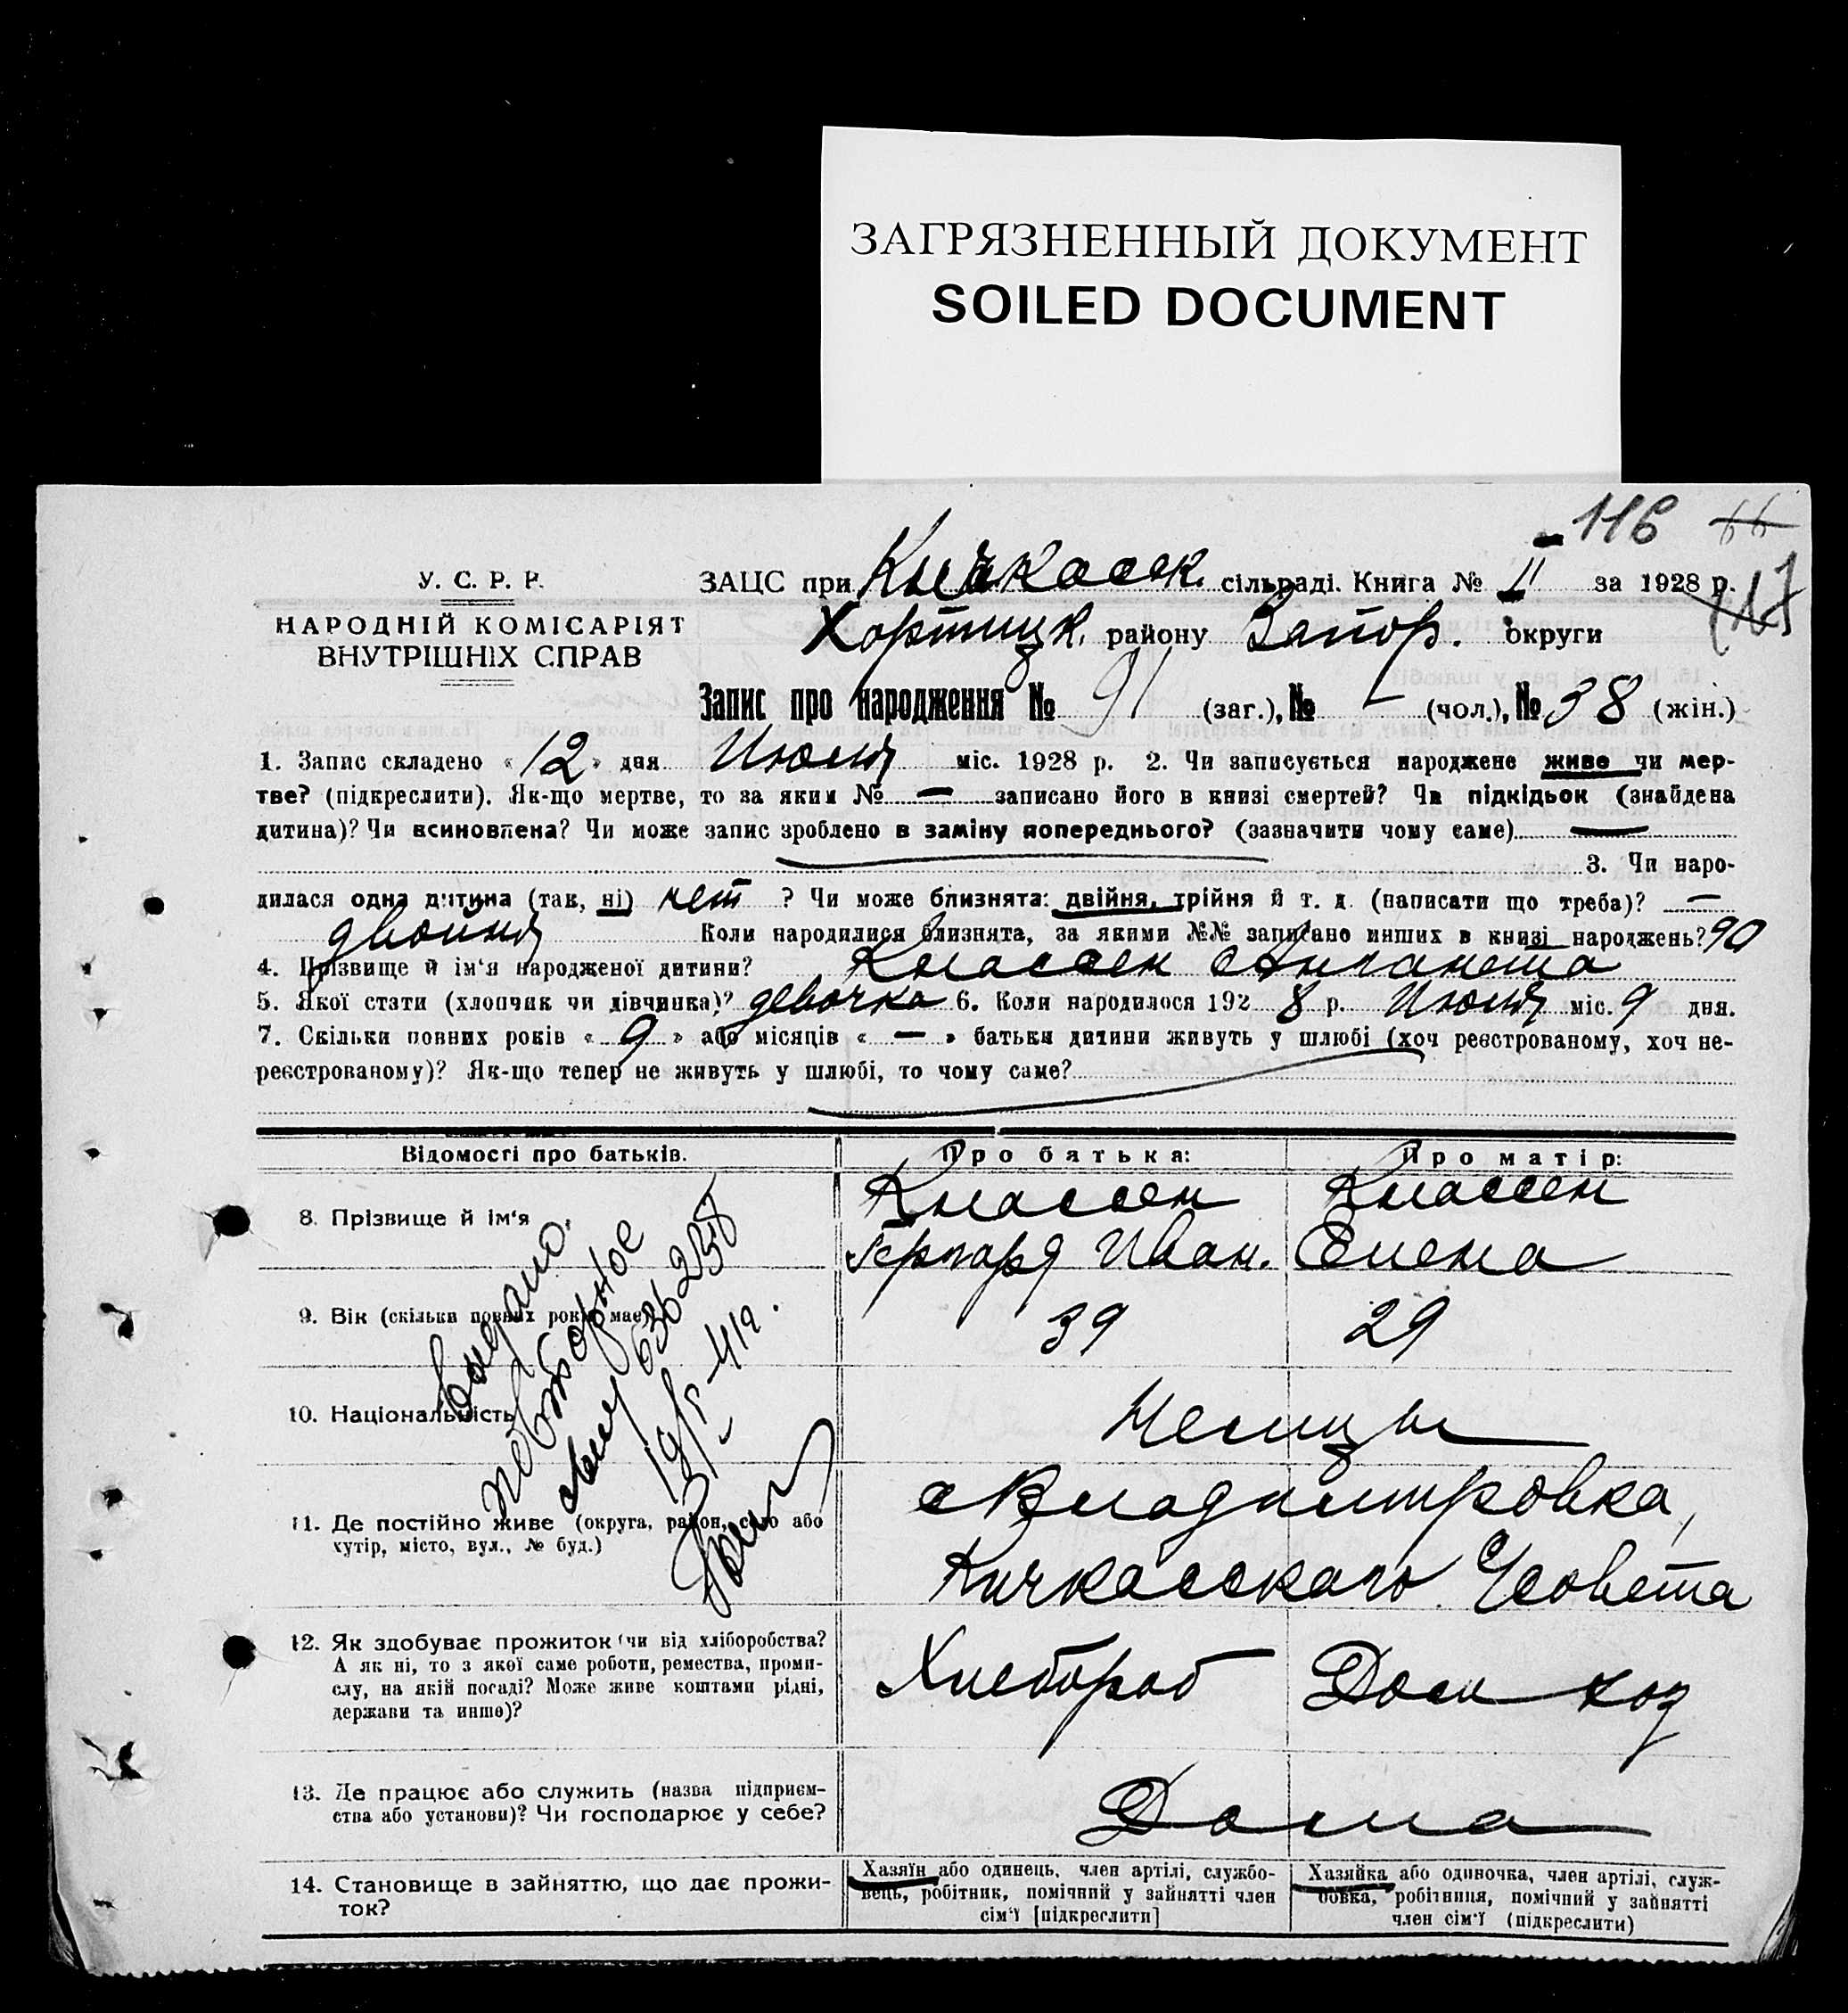 ЗАГРЯЗНЕННЫЙ ДОКУМЕНТ
SOILED DOCUMENT
116 66
117
У. С. Р. Р.
НАРОДНІЙ КОМІСАРІЯТ
ВНУТРІШНІХ СПРАВ
ЗАЦС при Кичкасск. сільраді. Книга № II за 1928 р.
Хортицк. району Запор. округи
Запис про народження № 91 (заг.), № — (чол.), № 38 (жін.)
1. Запис складено «12» дня Июня міс. 1928 р. 2. Чи записується народжене живе чи мер-
тве? (підкреслити). Як-що мертве, то за яким № — записано його в книзі смертей? Чи підкідьок (знайдена
дитина)? Чи всиновлена? Чи може запис зроблено в заміну попереднього? (зазначити чому саме) —
3. Чи наро-
дилася одна дитина (так, ні) нет ? Чи може близнята: двійня, трійня й т. д. (написати що треба)? —
двойня Коли народилися близнята, за якими №№ записано инших в книзі народжень? 90
4. Прізвище й ім‘я народженої дитини? Классен Аганета
5. Якої стати (хлопчик чи дівчинка)? девочка 6. Коли народилося 1928 р. Июня міс. 9 дня.
7. Скільки повних років «9» або місяців «—» батьки дитини живуть у шлюбі (хоч реєстрованому, хоч не-
реєстрованому)? Як-що тепер не живуть у шлюбі, то чому саме?
Відомості про батьків.
Про батька:
Про матір:
8. Прізвище й ім‘я
Классен
Гергард Иван.
Классен
Елена
9. Вік (скільки повних років має)
39
29
10. Національність
Немцы
11. Де постійно живе (округа, район, село або
хутір, місто, вул., № буд.)
с Владимировка,
Кичкасского С/совета
12. Як здобуває прожиток (чи від хліборобства?
А як ні, то з якої саме роботи, ремества, проми-
слу, на якій посаді? Може живе коштами рідні,
держави та инше)?
Хлебороб
Дом хоз
13. Де працює або служить (назва підприєм-
ства або установи)? Чи господарює у себе?
Дома
14. Становище в зайняттю, що дає прожи-
ток?
Хазяїн або одинець, член артілі, службо-
вець, робітник, помічний у зайнятті член
сім‘ї [підкреслити]
Хазяйка або одиночка, член артілі, служ-
бовка, робітниця, помічний у зайнятті
член сім‘ї (підкреслити)
Выдано.
повторное
636238
19/5-41г.